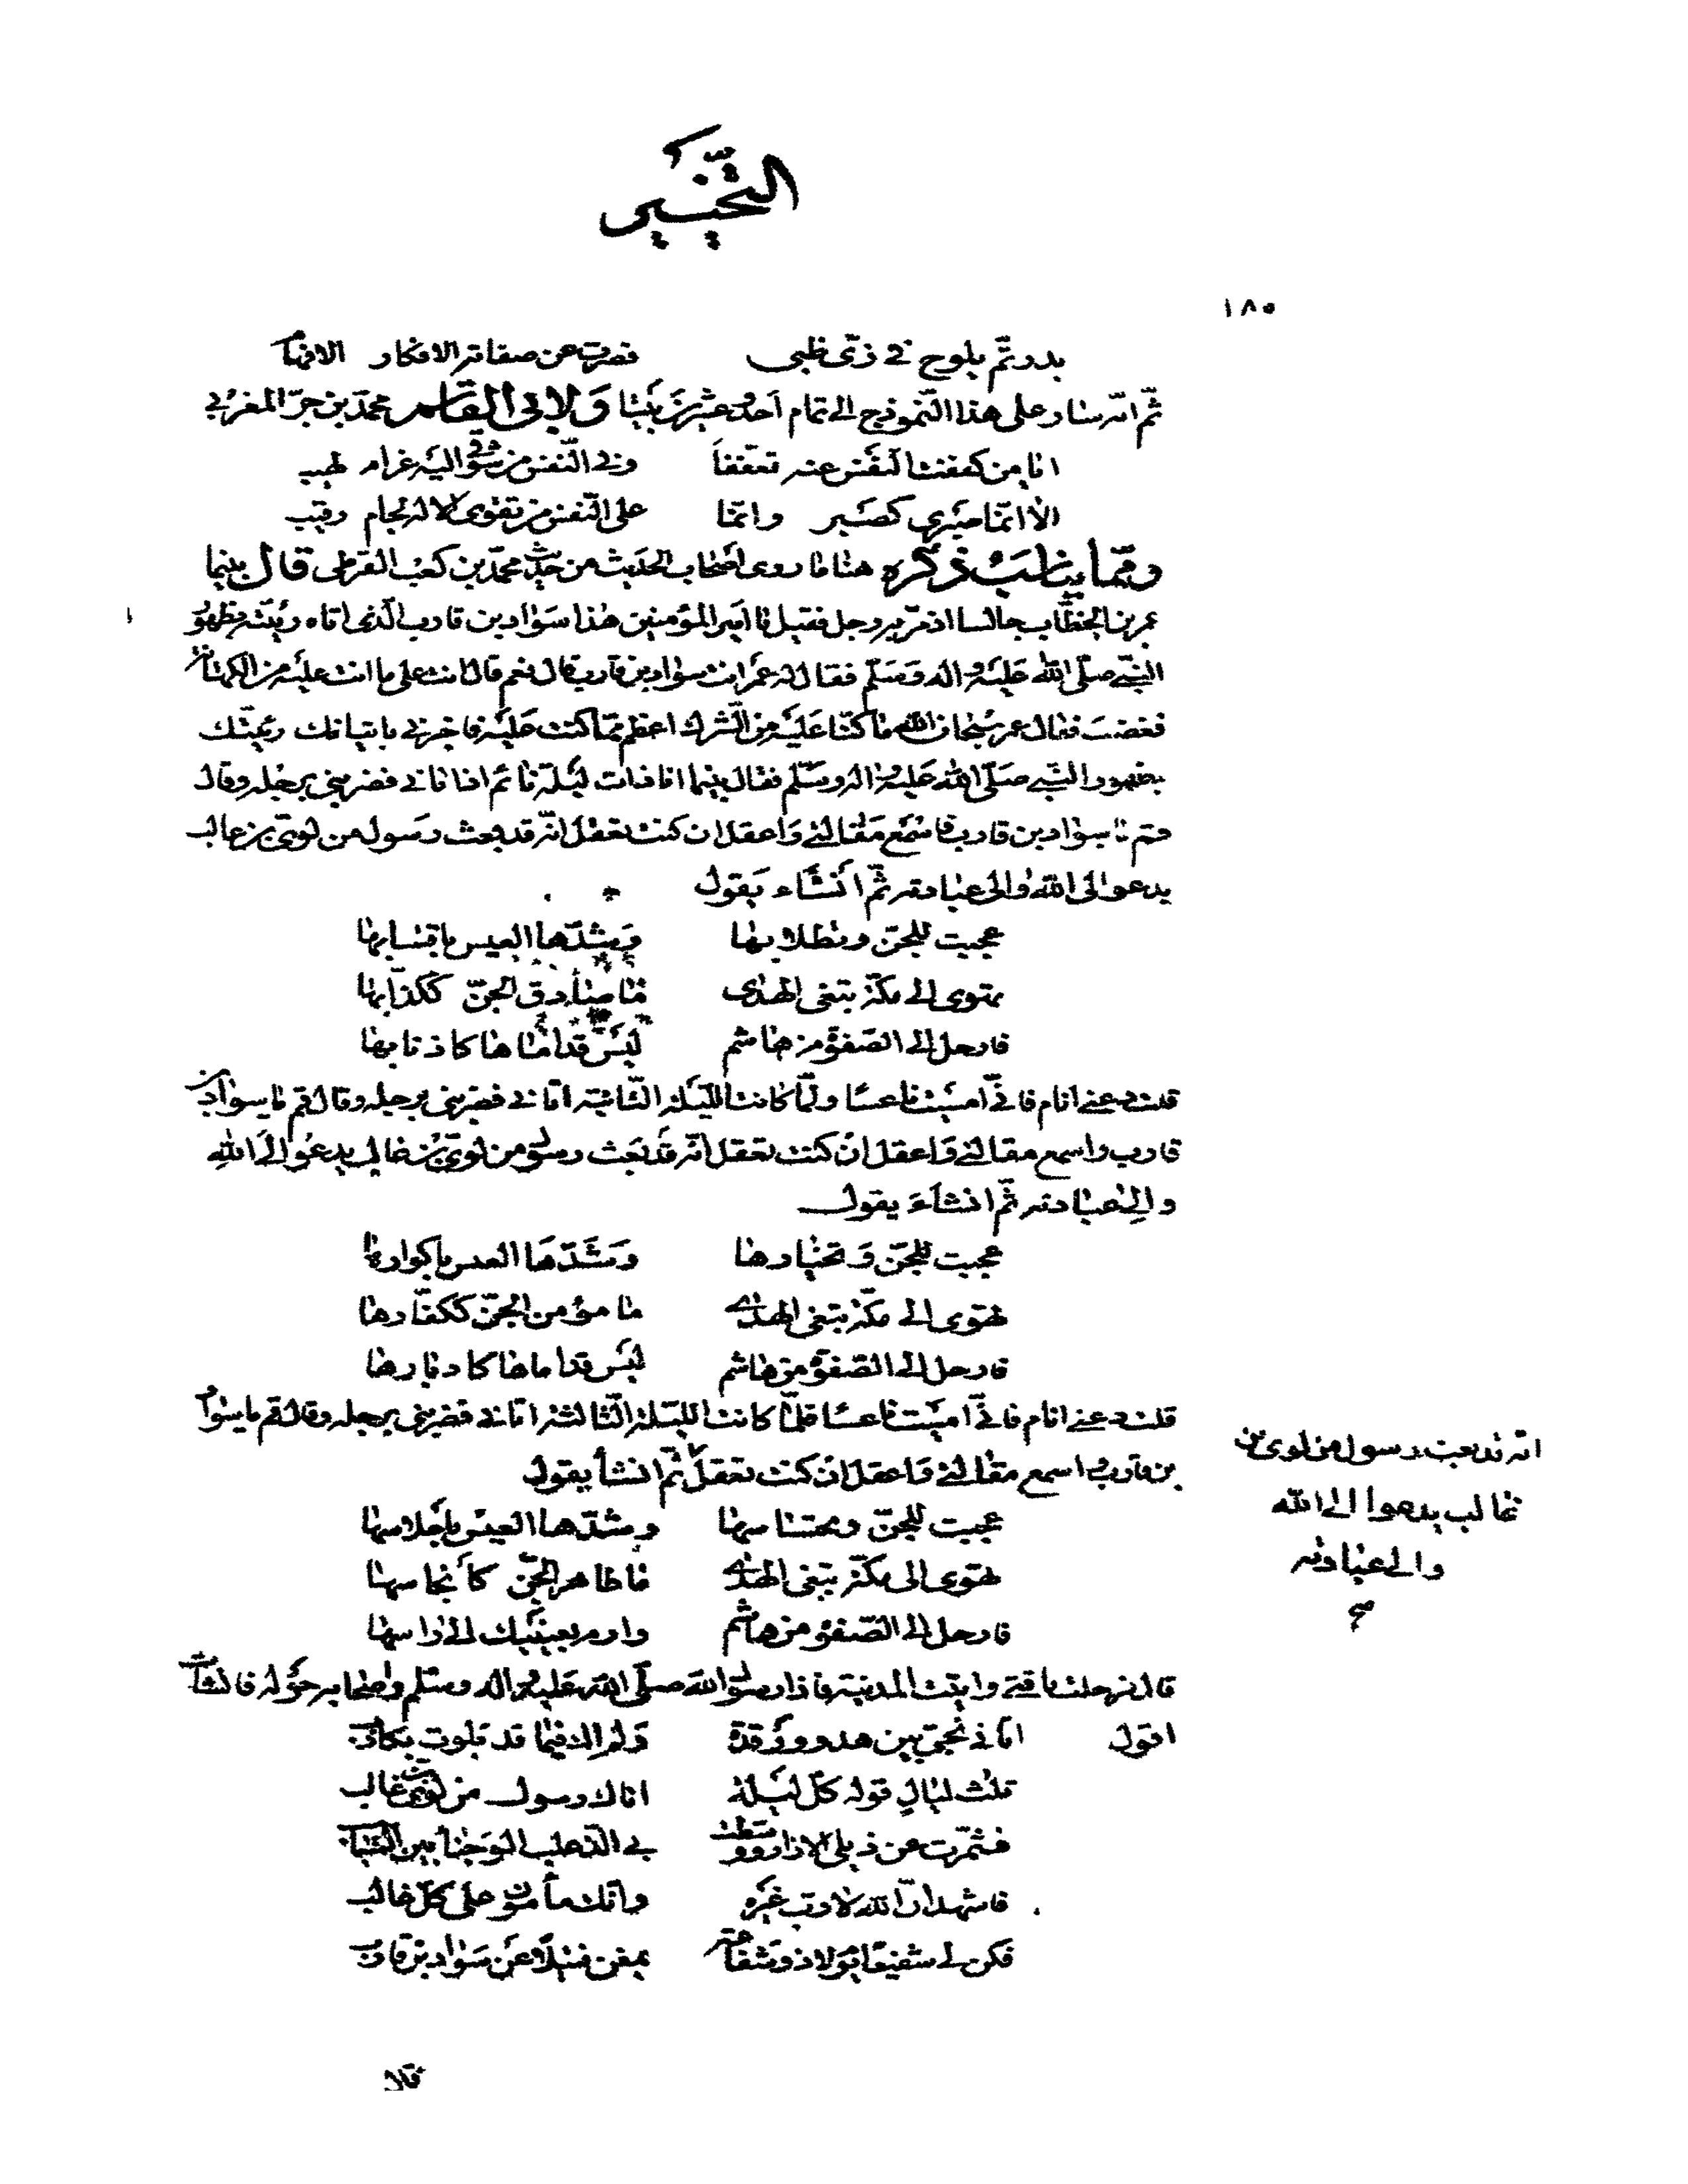 التخيير
١٨٥
بدر تمّ يلوح في زيّ ظبي قصرت عن صفاته الافكار الافهام
ثمّ انه سار على هذا النّموذج الى تمام أحد وعشرين بَيْتا وَلابي القاسم محمّد بن المغربي
انا من كففت النّفس عنه تعفّفاً وفي النّفس من شوق اليه غرام لهيب
الا انّما صبري كصبر وانّما على النّفس من تقوى الاله لجام رقيب
وممّا يناسب ذكره هنا ما روى اصحاب الحديث من حديث محمّد بن كعب القرظى قال بينما
عمر بن الخطّاب جالسا اذ مرّ به رجل فقيل يا امير المؤمنين هذا سَوٰاد بن قارب الّذى اتاه رئيّه بظهور
النبيّ صلّى الله عليه واله وسلّم فقال له عمر انت سواد بن قارب قال نعم قال انت على ما انت عليه من الكهانة
فغضب فقال عمر سبحان الله ما كنّا عليه من الشّرك اعظم ممّا كنت عليه فاخبرني باتيانك رئيّك
بظهور النّبي صلّى الله عليه واله وسلّم فقال بينما انا ذات ليلة نائم اذا تاني فضربني برجله وقال
قم يا سواد بن قارب فاسمع مقالتي وَاعقل ان كنت تعقل انّه قد بعث رسول من لويّ بن غالب
يدعو الى الله والى عبادته ثمّ أنشاء يقول
عجبت للجنّ وتطلابها وشدّها العيس باقتابها
تهوى الى مكّة تبتغى الهدى ما صادق الجنّ ككذّابها
فارحل الى الصّفوة من هاشم ليس قداماها كاذنابها
قلت دعني انام فانّي امسيت ناعسا ولمّا كانت اللّيلة الثّانية اتاني فضربني برجله وقال قم يا سواد بن
قارب واسمع مقالتي وَاعقل ان كنت تعقل انّه قد بعث رسول من لويّ بن غالب يدعو الى الله
والى عبادته ثمّ انشاء يقول
عجبت للجنّ وَتخبارها وشدّها العيس باكوارها
تهوى الى مكّة تبتغى الهدى ما مؤمن الجنّ ككفّارها
فارحل الى الصّفوة من هاشم ليس قداماها كادبارها
قلت دعني انام فانّي امسيت ناعسا فلمّا كانت اللّيلة الثّالثة اتاني فضربني برجله وقال قم يا سواد
بن قارب واسمع مقالتي وَاعقل ان كنت تعقل ثمّ انشأ يقول
انّه قد بعث رسول من لوى بن
غالب يدعوا الى الله
والى عبادته
صح
عجبت للجنّ وتحساسها وشدّها العيس باحلاسها
تهوى الى مكّة تبتغى الهدى ما طاهر الجنّ كأنجاسها
فارحل الى الصّفوة من هاشم وارم بعينيك الى راسها
قال فرحلت ناقتي وأتيت المدينة فاذا رسول الله صلّى الله عليه واله وسلّم واصحابه حوله فانشأت
اقول اتاني نجيّ بين هدو ورقدة وَلم اك فيما قد تلوت بكاذب
ثلث ليال قوله كلّ ليلة اتاك رسول من لويّ بن غالب
فشمّرت عن ذيلي الازار ووسّطت بي الذّعلب الوجناء بين السّباسب
فاشهد انّ الله لا ربّ غيره وانّك مأمون على كلّ غالب
فكن لي شفيعا يوم لا ذو شفاعة بمغن فتيلًا عن سَوٰاد بن قارب
قال